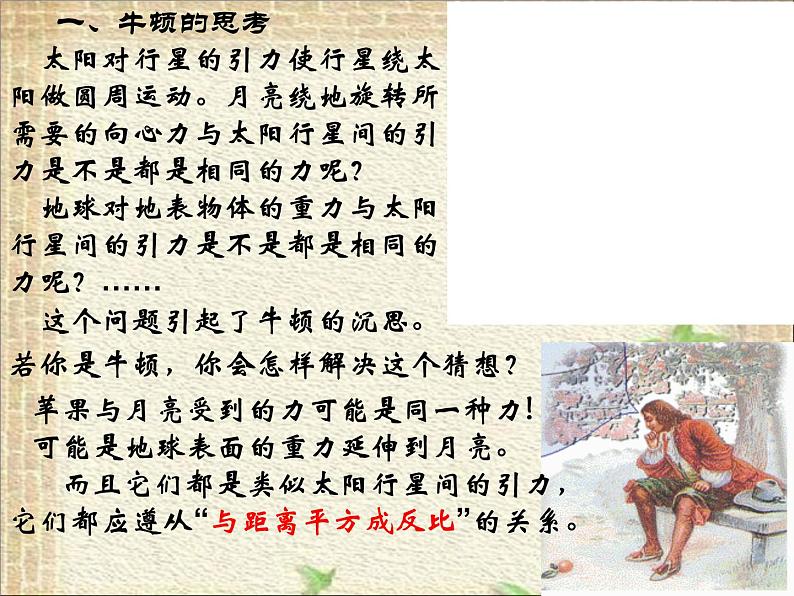 一、牛顿的思考
太阳对行星的引力使行星绕太
阳做圆周运动。月亮绕地旋转所
需要的向心力与太阳行星间的引
力是不是都是相同的力呢?
地球对地表物体的重力与太阳
行星间的引力是不是都是相同的
力呢? ……
这个问题引起了牛顿的沉思。
若你是牛顿，你会怎样解决这个猜想?
苹果与月亮受到的力可能是同一种力!
可能是地球表面的重力延伸到月亮。
而且它们都是类似太阳行星间的引力，
它们都应遵从“与距离平方成反比”的关系。